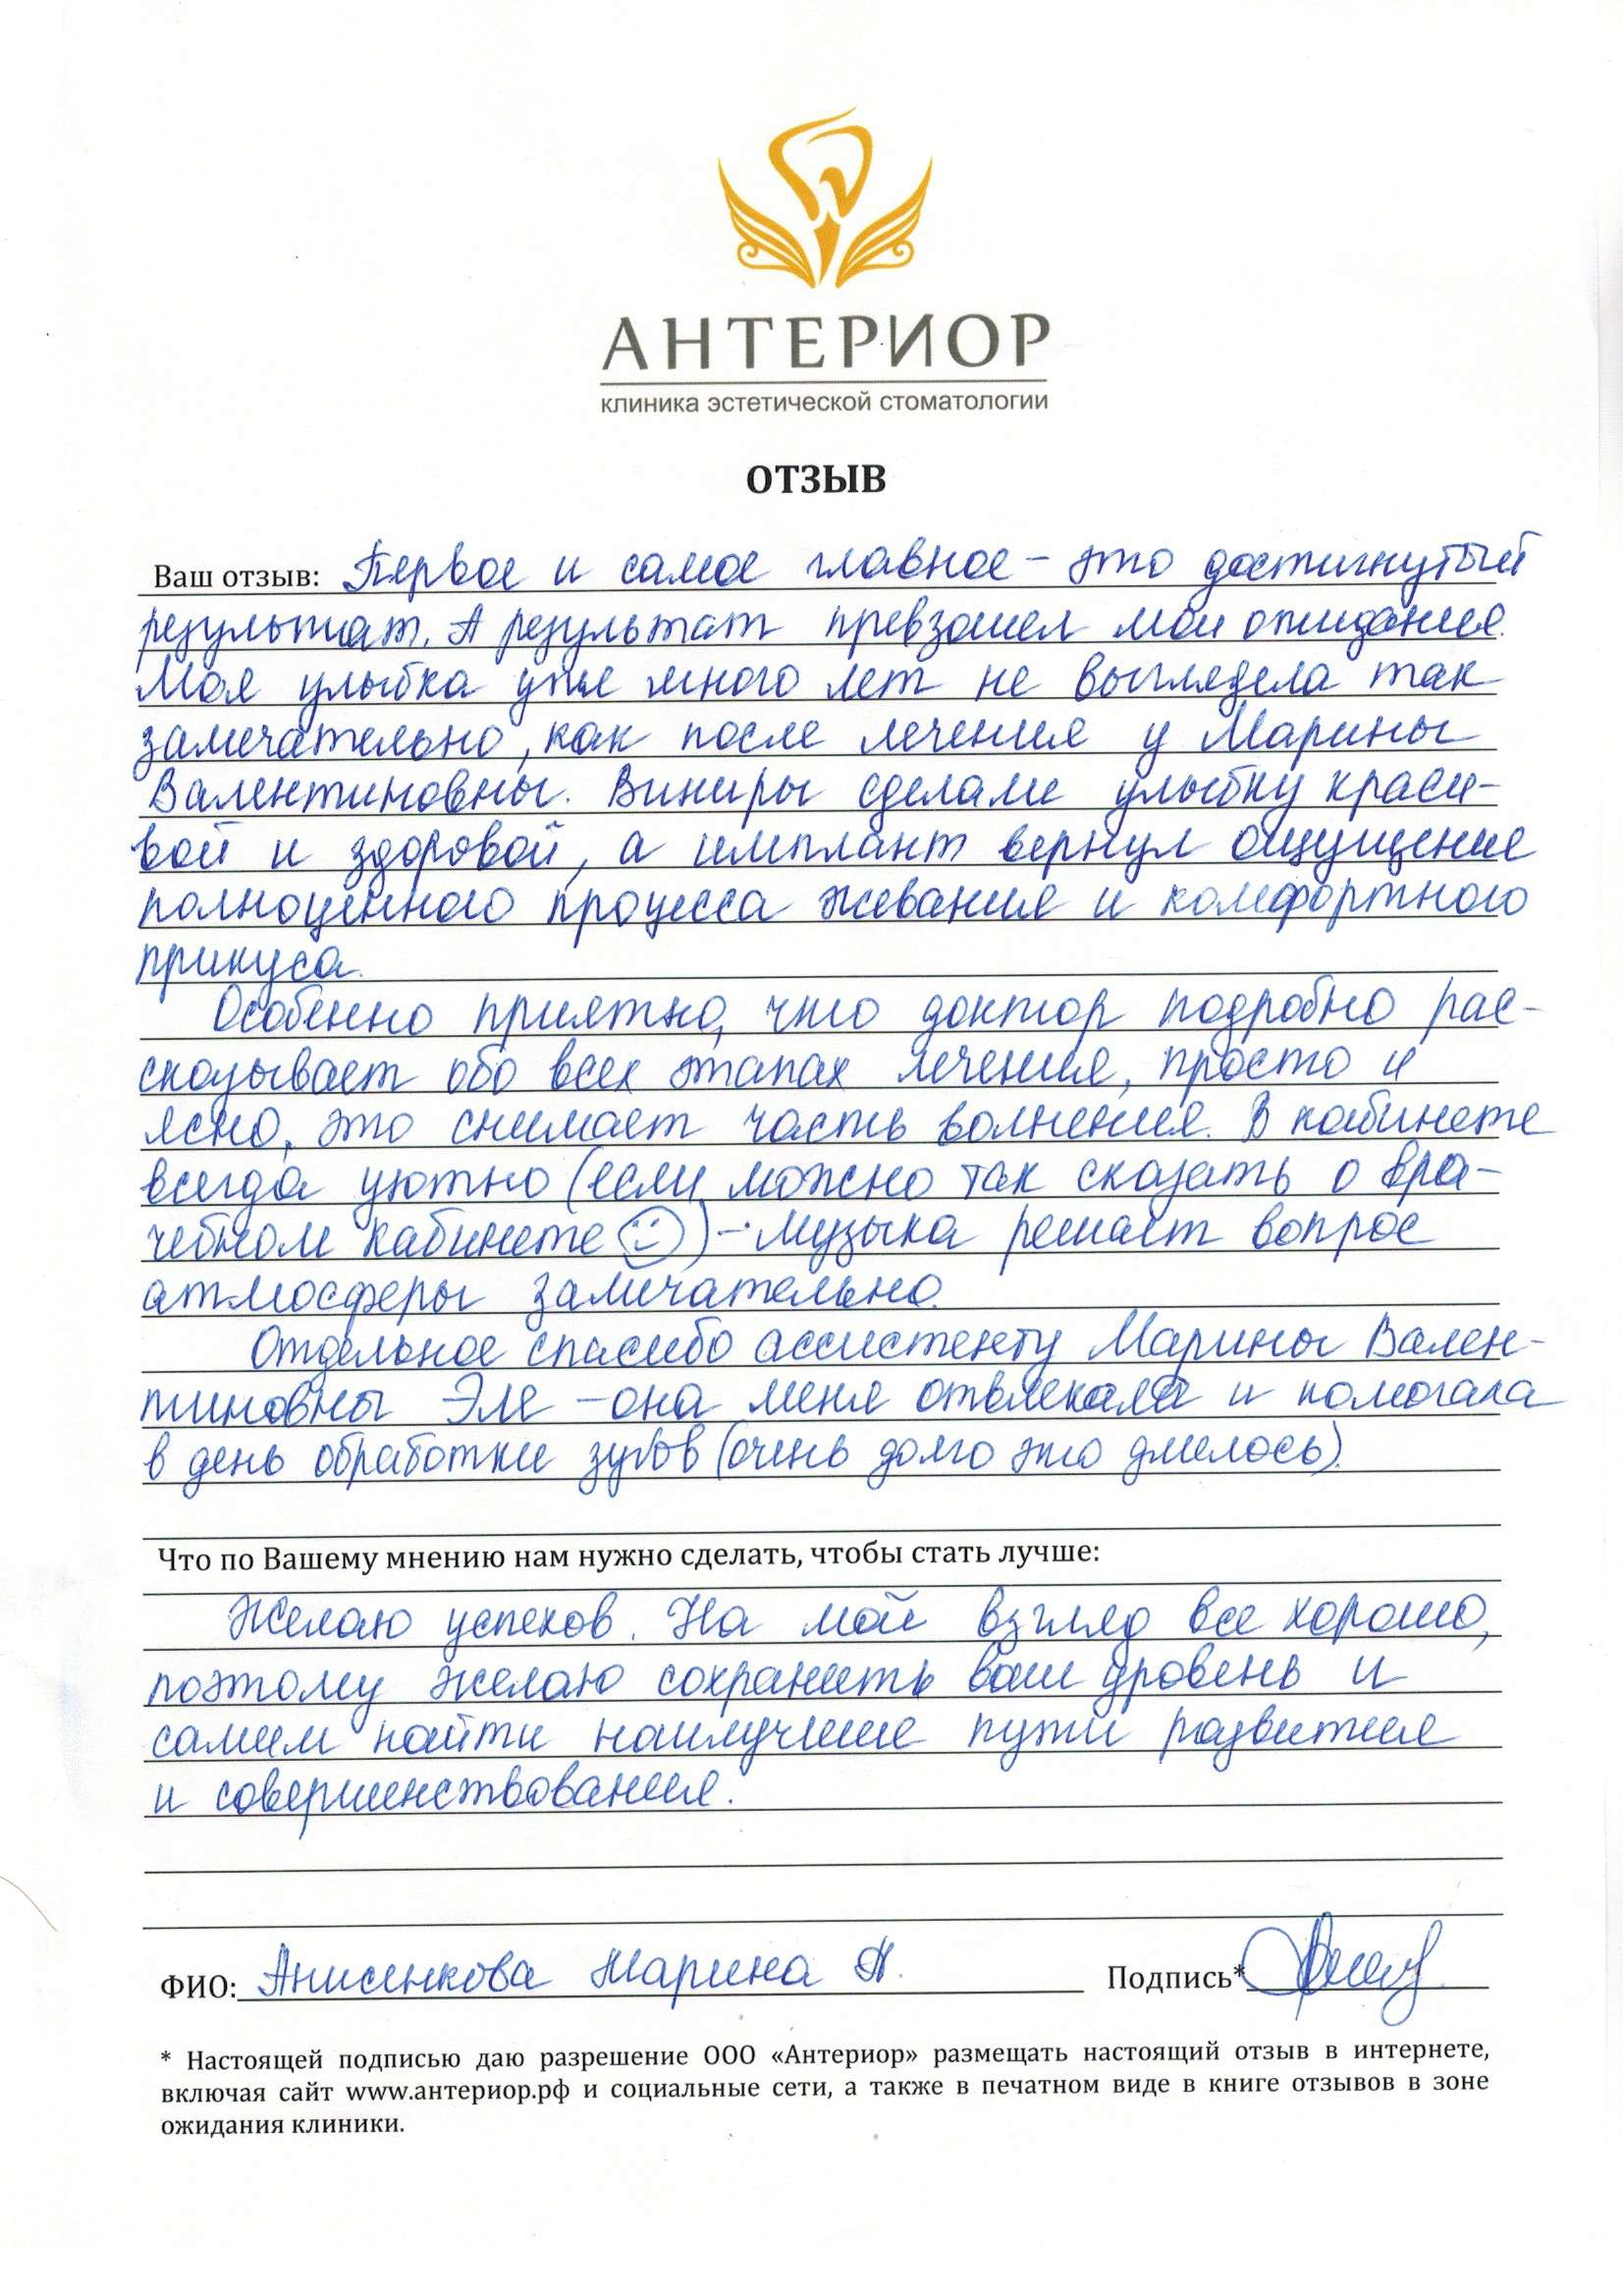 АНТЕРИОР
клиника эстетической стоматологии
ОТЗЫВ
Ваш отзыв: Первое и самое главное – это достигнутый
результат. А результат превзошел мои ожидания.
Моя улыбка уже много лет не выглядела так
замечательно, как после лечения у Марины
Валентиновны. Виниры сделали улыбку краси-
вой и здоровой, а имплант вернул ощущение
полноценного процесса жевания и комфортного
прикуса.
Особенно приятно, что доктор подробно рас-
сказывает обо всех этапах лечения, просто и
ясно, это снимает часть волнения. В кабинете
всегда уютно (если можно так сказать о вра-
чебном кабинете ☺) – музыка решает вопрос
атмосферы замечательно.
Отдельное спасибо ассистенту Марины Вален-
тиновны Эле – она меня отвлекала и помогала
в день обработки зубов (очень долго это длилось).
Что по Вашему мнению нам нужно сделать, чтобы стать лучше:
Желаю успехов. На мой взгляд все хорошо,
поэтому желаю сохранить ваш уровень и
самим найти наилучшие пути развития
и совершенствования.
ФИО: Анисенкова Марина А. Подпись*
* Настоящей подписью даю разрешение ООО «Антериор» размещать настоящий отзыв в интернете,
включая сайт www.антериор.рф и социальные сети, а также в печатном виде в книге отзывов в зоне
ожидания клиники.